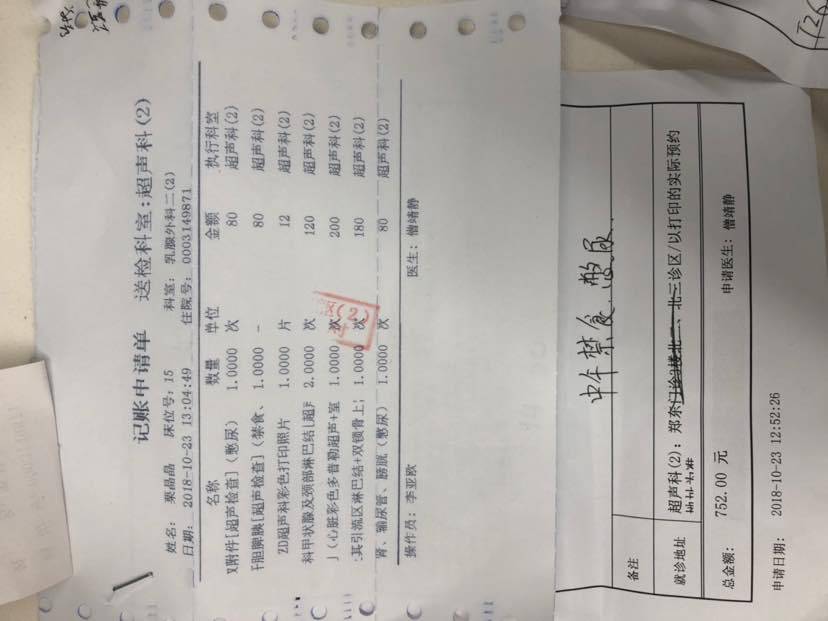 记账申请单 送检科室:超声科(2)
姓名: 栗晶晶 床位号: 15 科室: 乳腺外科二(2)
日期: 2018-10-23 13:04:49 住院号: 0003149871
名称 数量 单位 金额 执行科室
附件[超声检查](憋尿) 1.0000 次 80 超声科(2)
干胆脾胰[超声检查](禁食、 1.0000 - 80 超声科(2)
ZD超声科彩色打印照片 1.0000 片 12 超声科(2)
科甲状腺及颈部淋巴结[超 2.0000 次 120 超声科(2)
(心脏彩色多普勒超声+室 1.0000 次 200 超声科(2)
其引流区淋巴结+双锁骨上; 1.0000 次 180 超声科(2)
肾、输尿管、膀胱(憋尿) 1.0000 次 80 超声科(2)
操作员: 李亚欧 医生: 僧靖静
区(2)
备注 中午禁食、憋尿.
就诊地址 超声科(2): 郑东门诊3楼北二、北三诊区/以打印的实际预约
地址为准
总金额: 752.00 元 申请医生: 僧靖静
申请日期: 2018-10-23 12:52:26